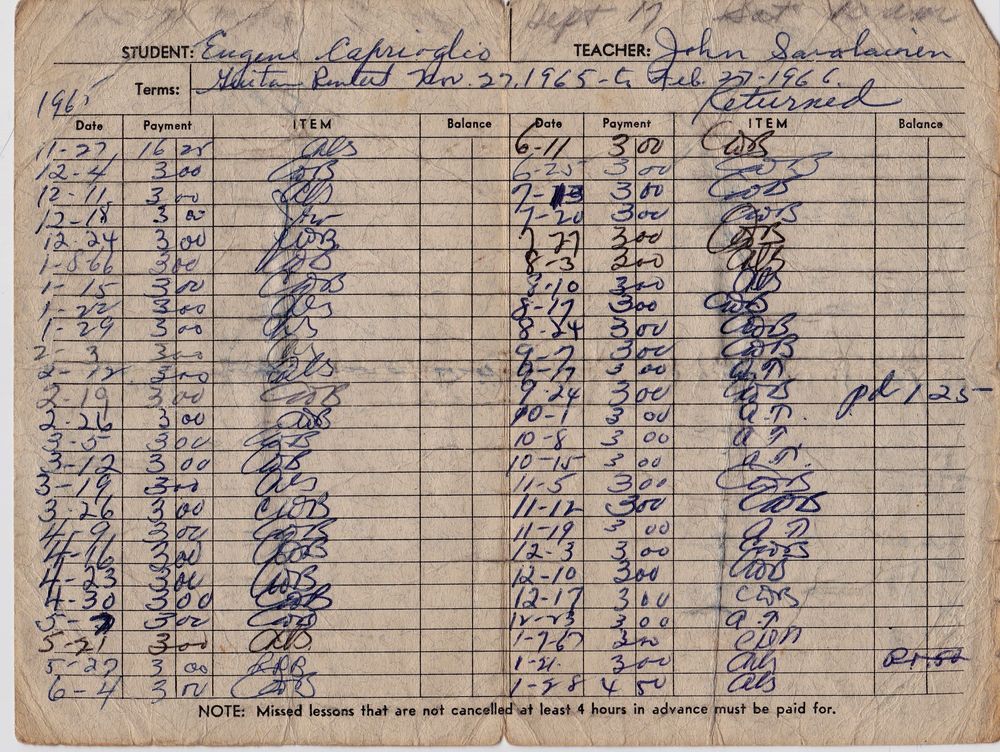 Sept 17 Sat
STUDENT: Eugene Caprioglio TEACHER: John
Terms: Guitar Rented Nov. 27, 1965 - to Feb. 27 - 1966.
1965 Returned
Date Payment ITEM Balance Date Payment ITEM Balance
11-27 16 25 als 6-11 3 00 CWB
12-4 3 00 CWB 6-25 3 00 CWB
12-11 3 00 als 7-13 3 00 CWB
12-18 3 00 7-20 3 00 CWB
12-24 3 00 CWB 7-27 3 00 CWB
1-8-66 3 00 CWB 8-3 3 00 als
1-15 3 00 CWB 8-10 3 00 als
1-22 3 00 als 8-17 3 00 CWB
1-29 3 00 als 8-24 3 00 CWB
2-3 3 00 als 9-7 3 00 CWB
2-12 3 00 als 9-17 3 00 a.T.
2-19 3 00 CWB 9-24 3 00 CWB pd 1 25
2-26 3 00 CWB 10-1 3 00 a.T.
3-5 3 00 CWB 10-8 3 00 a.T.
3-12 3 00 CWB 10-15 3 00 a.T.
3-19 3 00 als 11-5 3 00 CWB
3-26 3 00 CWB 11-12 3 00 CWB
4-9 3 00 CWB 11-19 3 00 a.T.
4-16 3 00 CWB 12-3 3 00 CWB
4-23 3 00 CWB 12-10 3 00 CWB
4-30 3 00 CWB 12-17 3 00 CWB
5-7 3 00 CWB 12-23 3 00 a.T.
5-21 3 00 1-7-67 3 00
5-27 3 00 1-21 3 00 als
6-4 3 00 CWB 1-28 4 50 als
NOTE: Missed lessons that are not cancelled at least 4 hours in advance must be paid for.